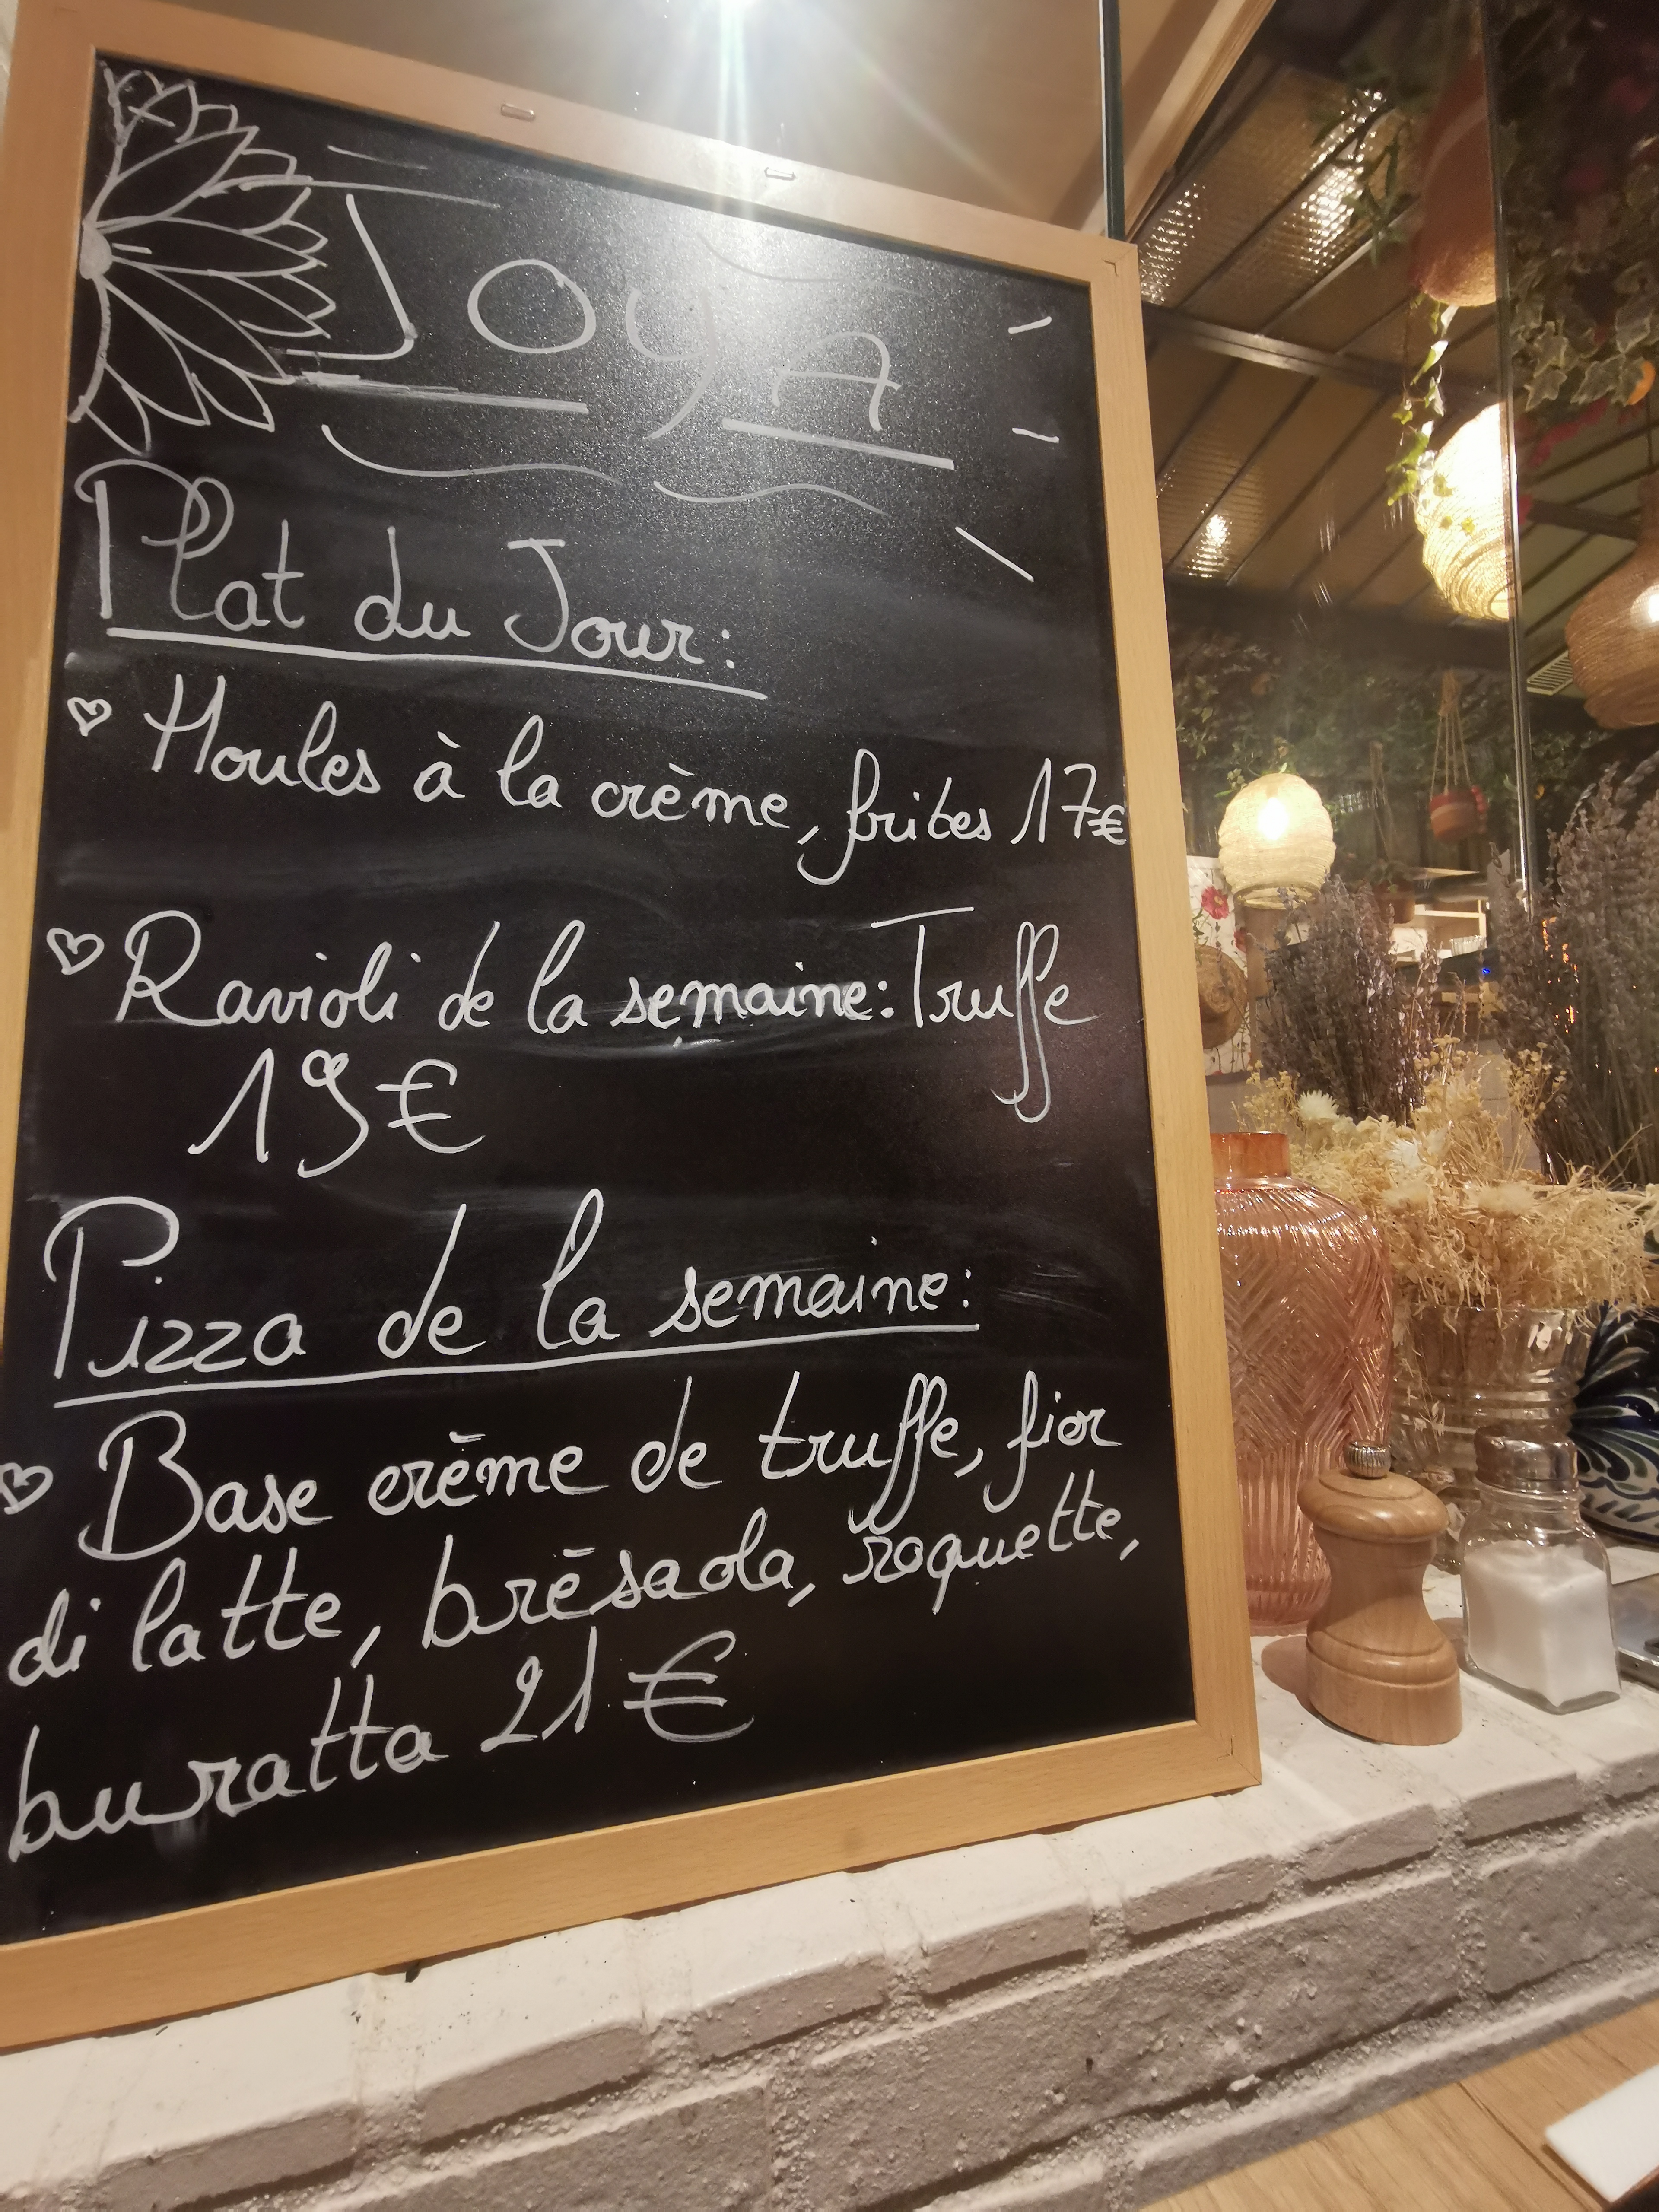 JOYA
Plat du Jour:
Moules à la crème, frites 17€
Ravioli de la semaine: Truffe
19€
Pizza de la semaine:
Base crème de truffe, fior
di latte, brésaola, roquette,
buratta 21€